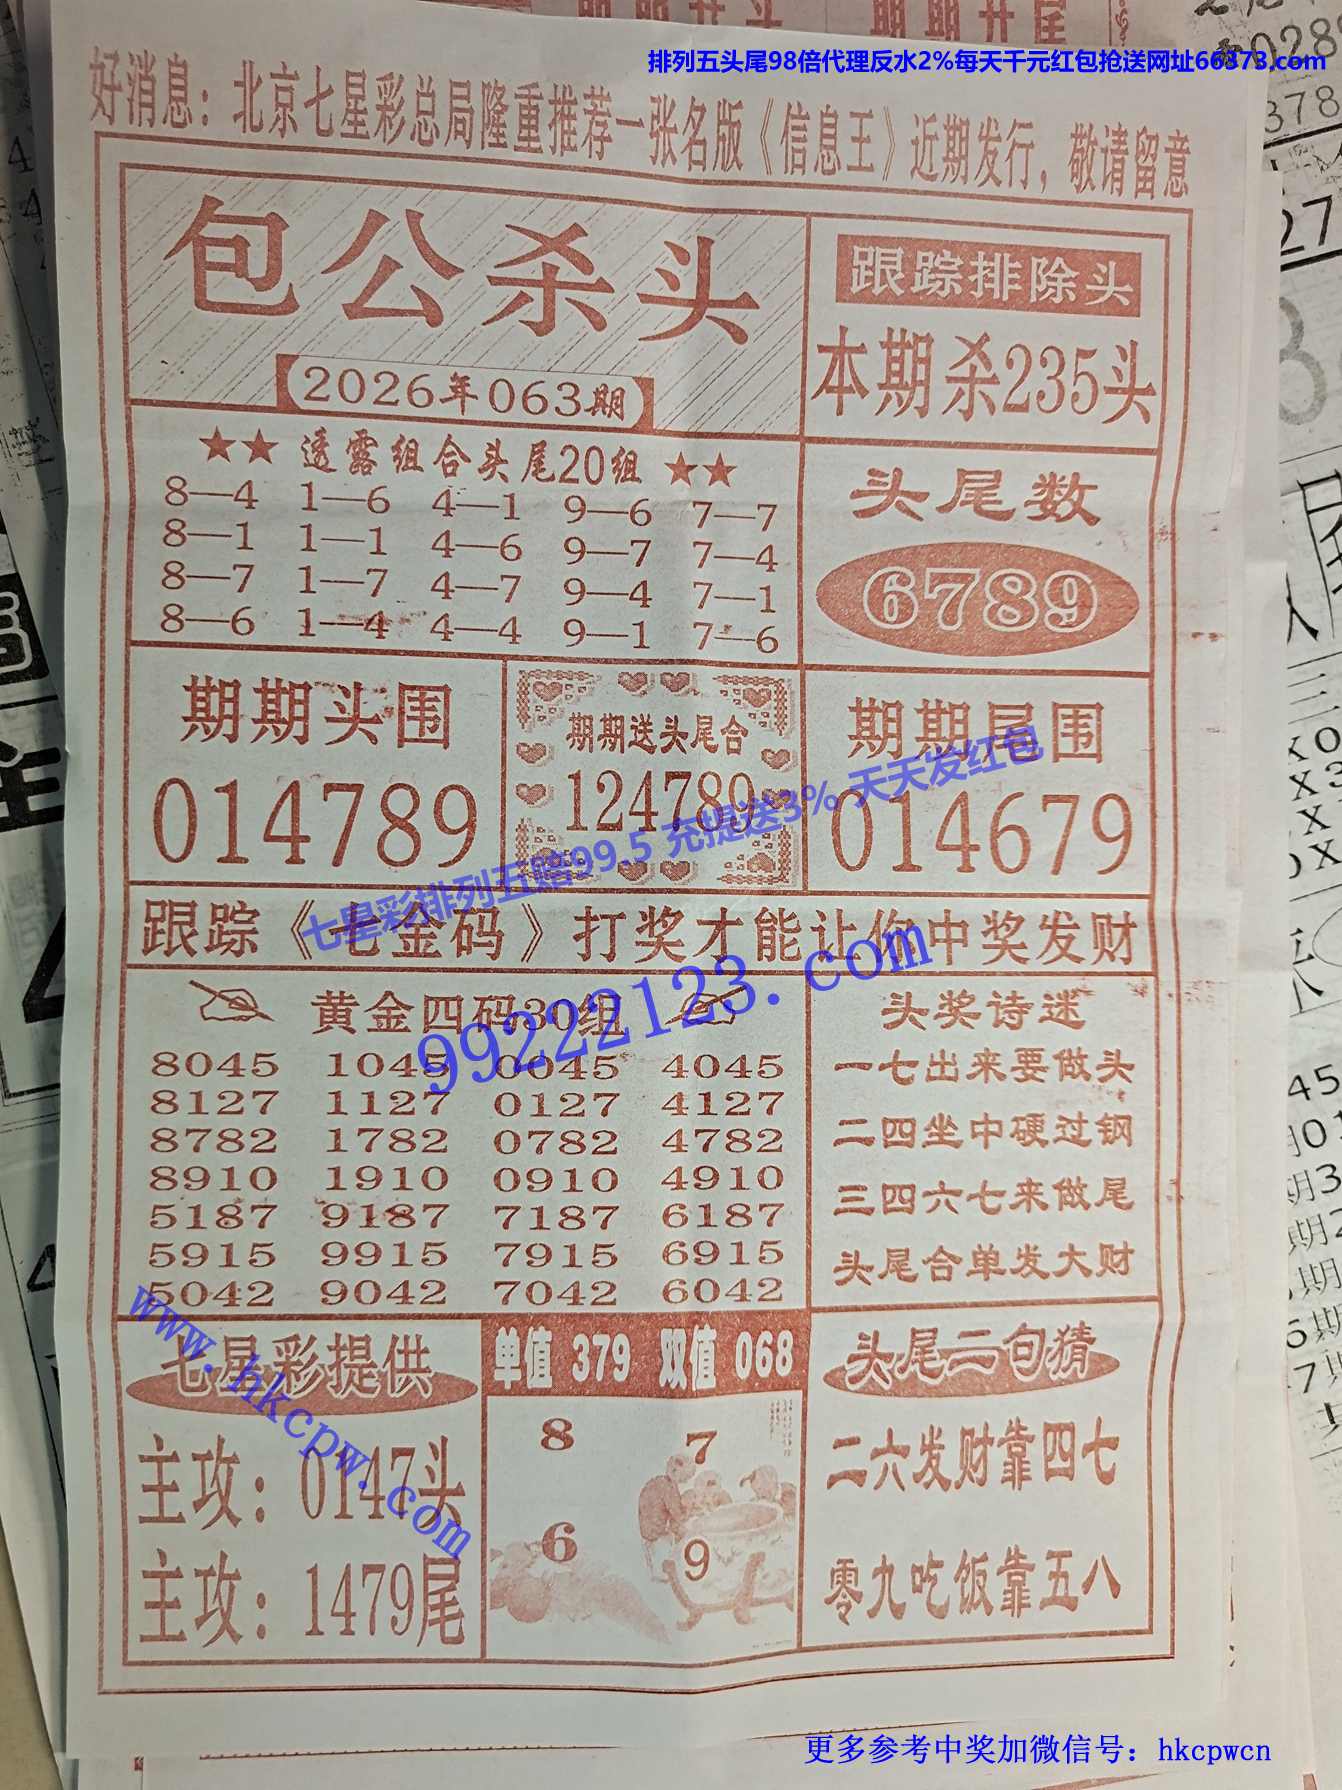 排列五头尾98倍代理反水2%每天千元红包抢送网址66373.com
好消息：北京七星彩总局隆重推荐一张名版《信息王》近期发行，敬请留意
包公杀头
2026年063期
跟踪排除头
本期杀235头
★★ 透露组合头尾20组 ★★
8—4 1—6 4—1 9—6 7—7
8—1 1—1 4—6 9—7 7—4
8—7 1—7 4—7 9—4 7—1
8—6 1—4 4—4 9—1 7—6
头尾数
6789
期期头围
014789
期期送头尾合
124789
期期尾围
014679
七星彩排列五赔99.5 充提送3% 天天发红包
跟踪《七金码》打奖才能让你中奖发财
99222123.com
黄金四码30组
8045 1045 0045 4045
8127 1127 0127 4127
8782 1782 0782 4782
8910 1910 0910 4910
5187 9187 7187 6187
5915 9915 7915 6915
5042 9042 7042 6042
头奖诗迷
一七出来要做头
二四坐中硬过钢
三四六七来做尾
头尾合单发大财
www.hkcpw.com
七星彩提供
主攻：0147头
主攻：1479尾
单值 379 双值 068
8 7
6 9
头尾二句猜
二六发财靠四七
零九吃饭靠五八
更多参考中奖加微信号：hkcpwcn